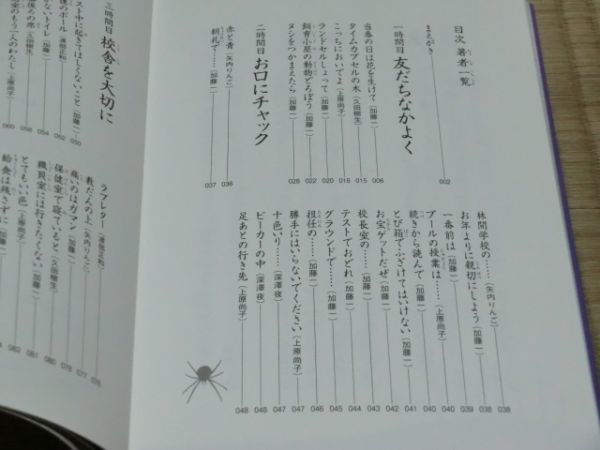 目次 著者一覧
まえがき 002
一時間目 友だちなかよく
当番の日は花を生けて(加藤一) 006
タイムカプセルの木(久田樹生) 015
こっちにおいでよ(上原尚子) 016
ランドセルしょって(加藤一) 020
飼育小屋の動物どろぼう(加藤一) 022
ヌシをつかまえたら(加藤一) 028
二時間目 お口にチャック
赤と青(矢内りんご) 036
朝礼で……(加藤一) 037
林間学校の……(矢内りんご) 038
お年よりに親切にしよう(加藤一) 038
一番前は(加藤一) 039
プールの授業は……(上原尚子) 040
続きから読んで(加藤一) 040
とび箱でふざけてはいけない(加藤一) 041
お宝ゲットだぜ(加藤一) 042
校長室の……(加藤一) 043
テストでおどれ(加藤一) 044
グラウンドで……(加藤一) 045
担任の……(加藤一) 046
勝手にはいらないでください(上原尚子) 047
十色いり(深澤夜) 047
ビーカーの中(深澤夜) 048
足あとの行き先(上原尚子) 048
三時間目 校舎を大切に
スト中に起きてはしくないこと(加藤一) 050
後のボール(渡部正和) 052
ないトイレ(加藤一) 054
後ろの席(久田樹生) 058
室のもう一人のわたし(上原尚子) 060
ラブレター(渡部正和) 076
教だんの上(矢内りんご) 077
痛いのはガマン(加藤一) 078
保健室で寝ていると(久田樹生)
職員室には行きたくない(加藤一)
とてもいい色(加藤一)
給食は残さずに